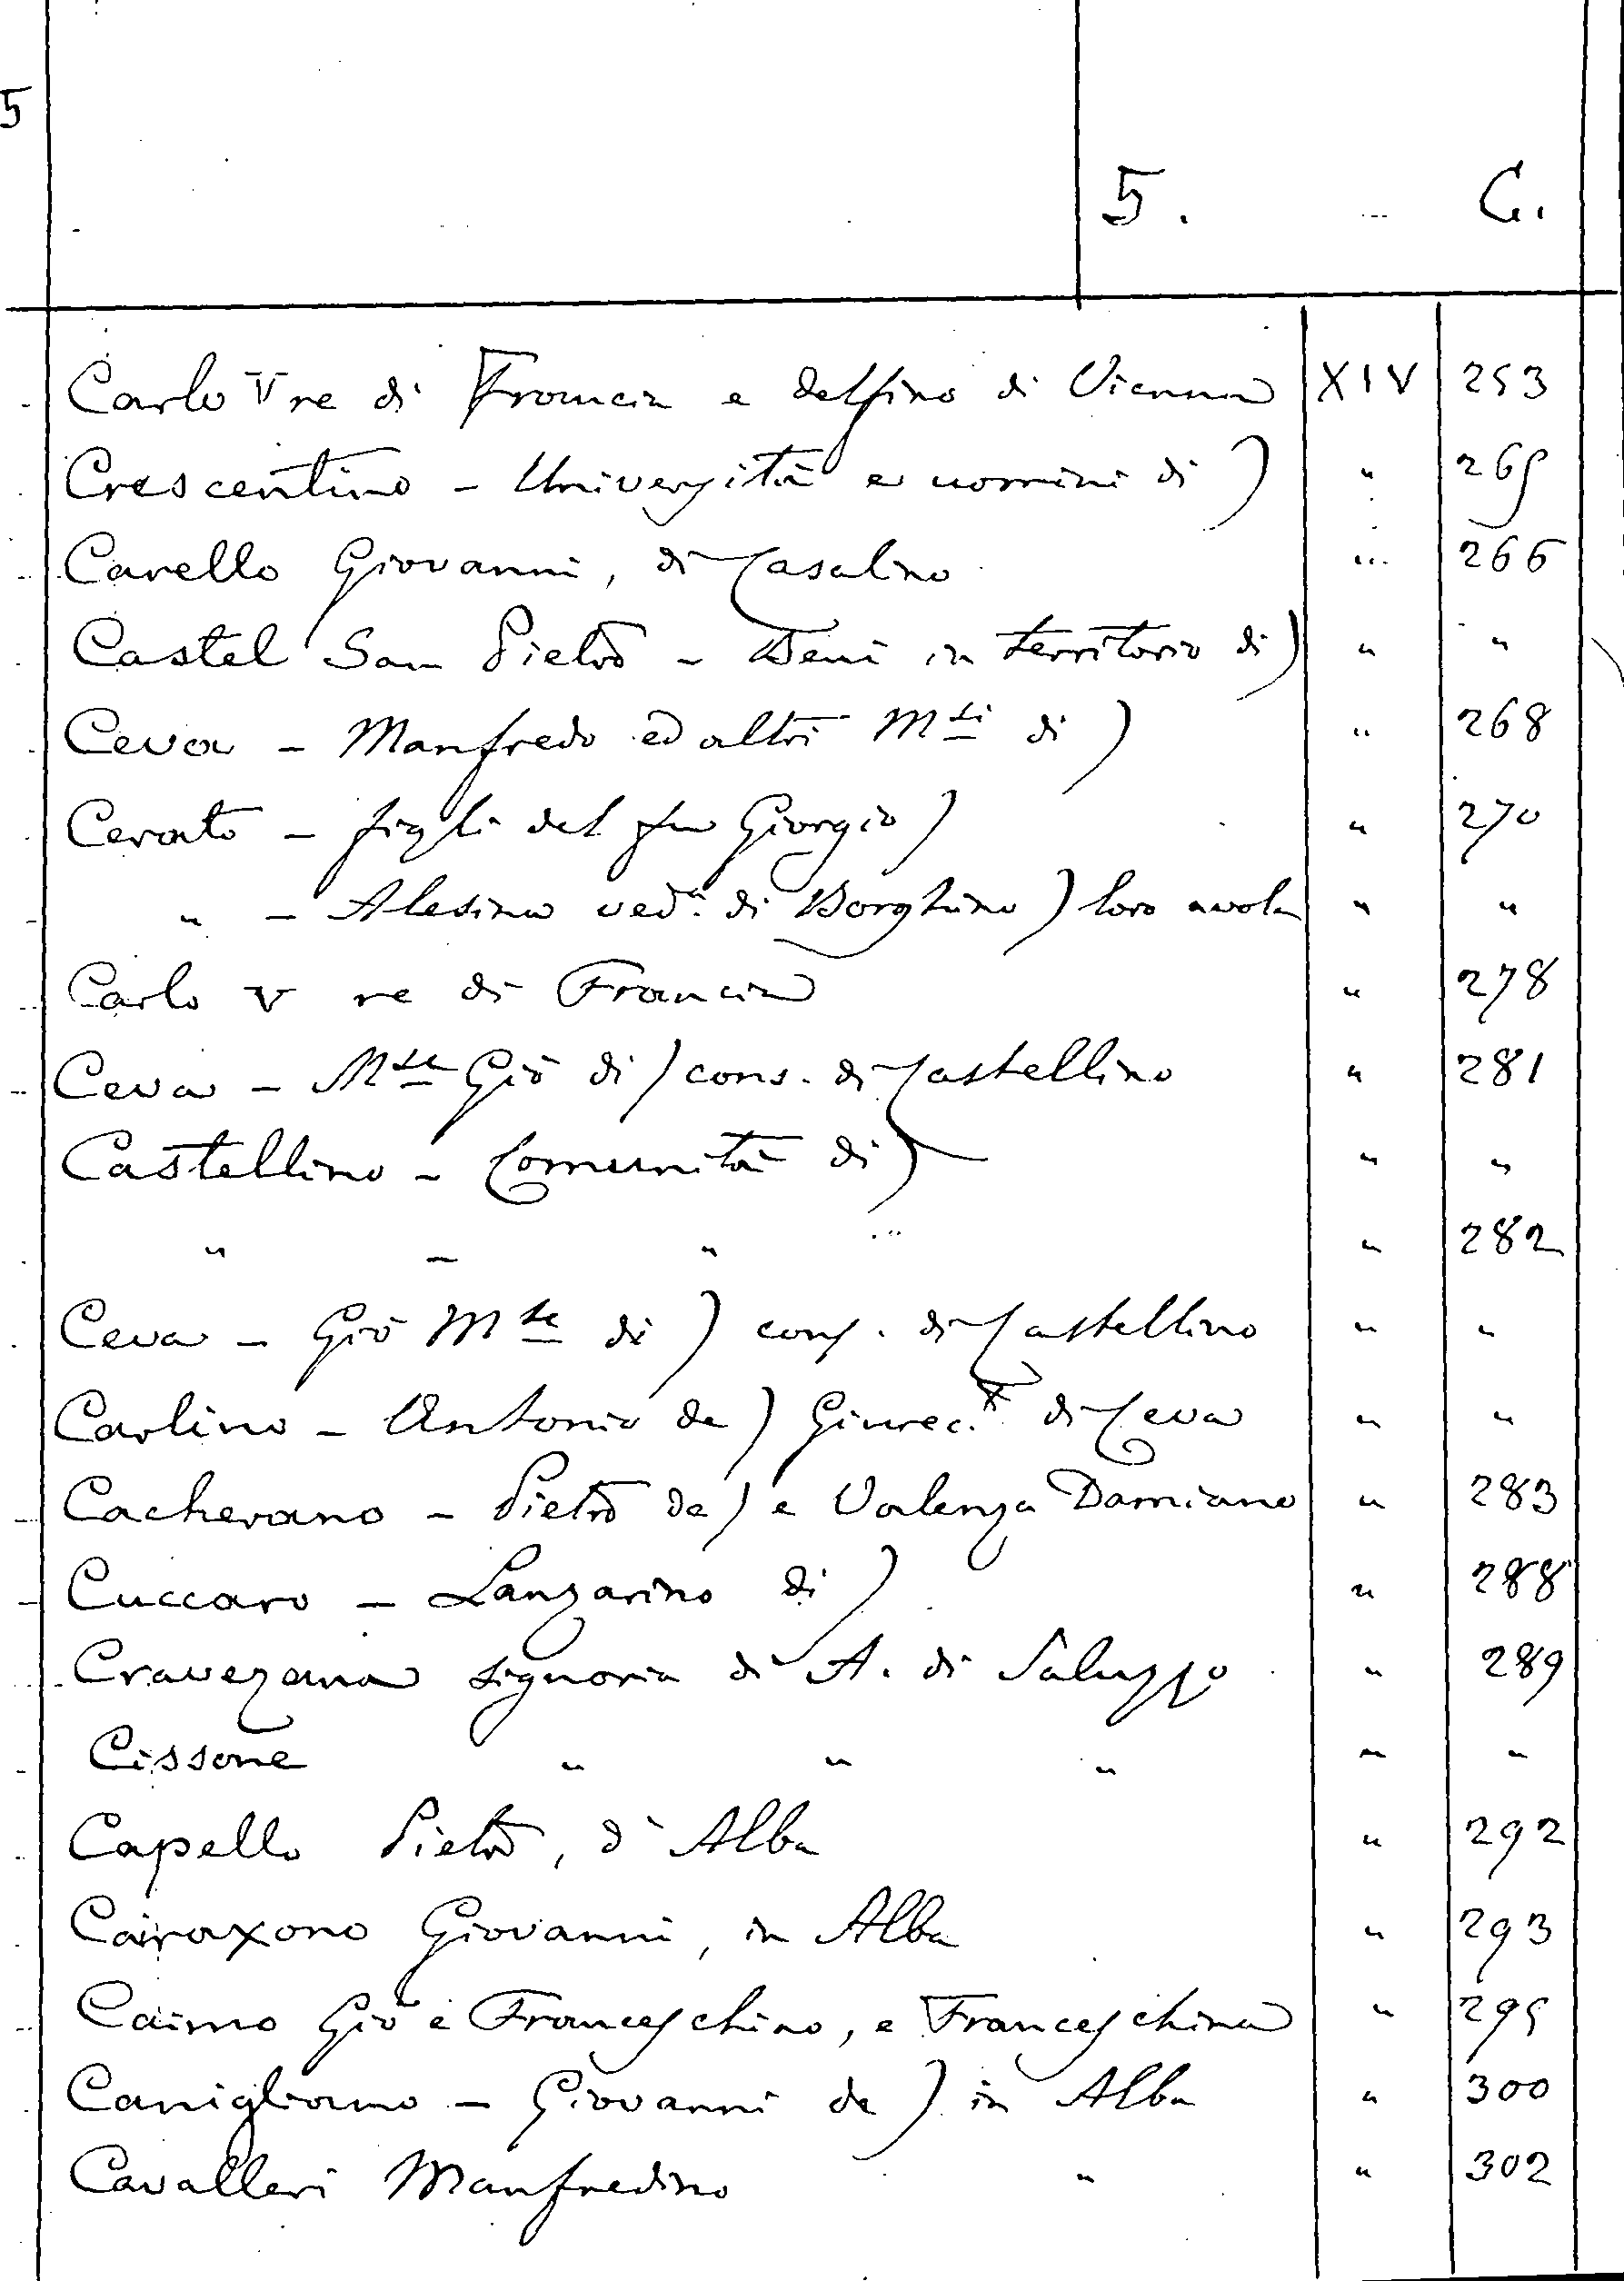 5
5. C.
Carlo V re di Francia e delfino di Vienna XIV 253
Crescentino - Università e uomini di) " 265
Carello Giovanni, di Casalino " 266
Castel San Pietro - Beni in territorio di) " "
Ceva - Manfredo ed altri Msi di) " 268
Cerato - figli del fu Giorgio) " 270
" - Alesina ved.a di Borghino) loro avola " "
Carlo V re di Francia " 278
Ceva - Mse Giō di) cons. di Castellino " 281
Castellino - Comunità di) " "
" - " " 282
Ceva - Giō Mse di) cons. di Castellino " "
Carlino - Antonio de) Giurec. di Ceva " "
Cacherano - Pietro de) e Valenza Damiano " 283
Cuccaro - Lanzarino di) " 288
Cravezana signoria di A. di Saluzzo " 289
Cissone " " " " "
Capello Pietro, d'Alba " 292
Cairaxono Giovanni, in Alba " 293
Caimo Giō e Franceschino, e Franceschina " 295
Canigliano - Giovanni de) in Alba " 300
Cavalleri Manfredino " " 302